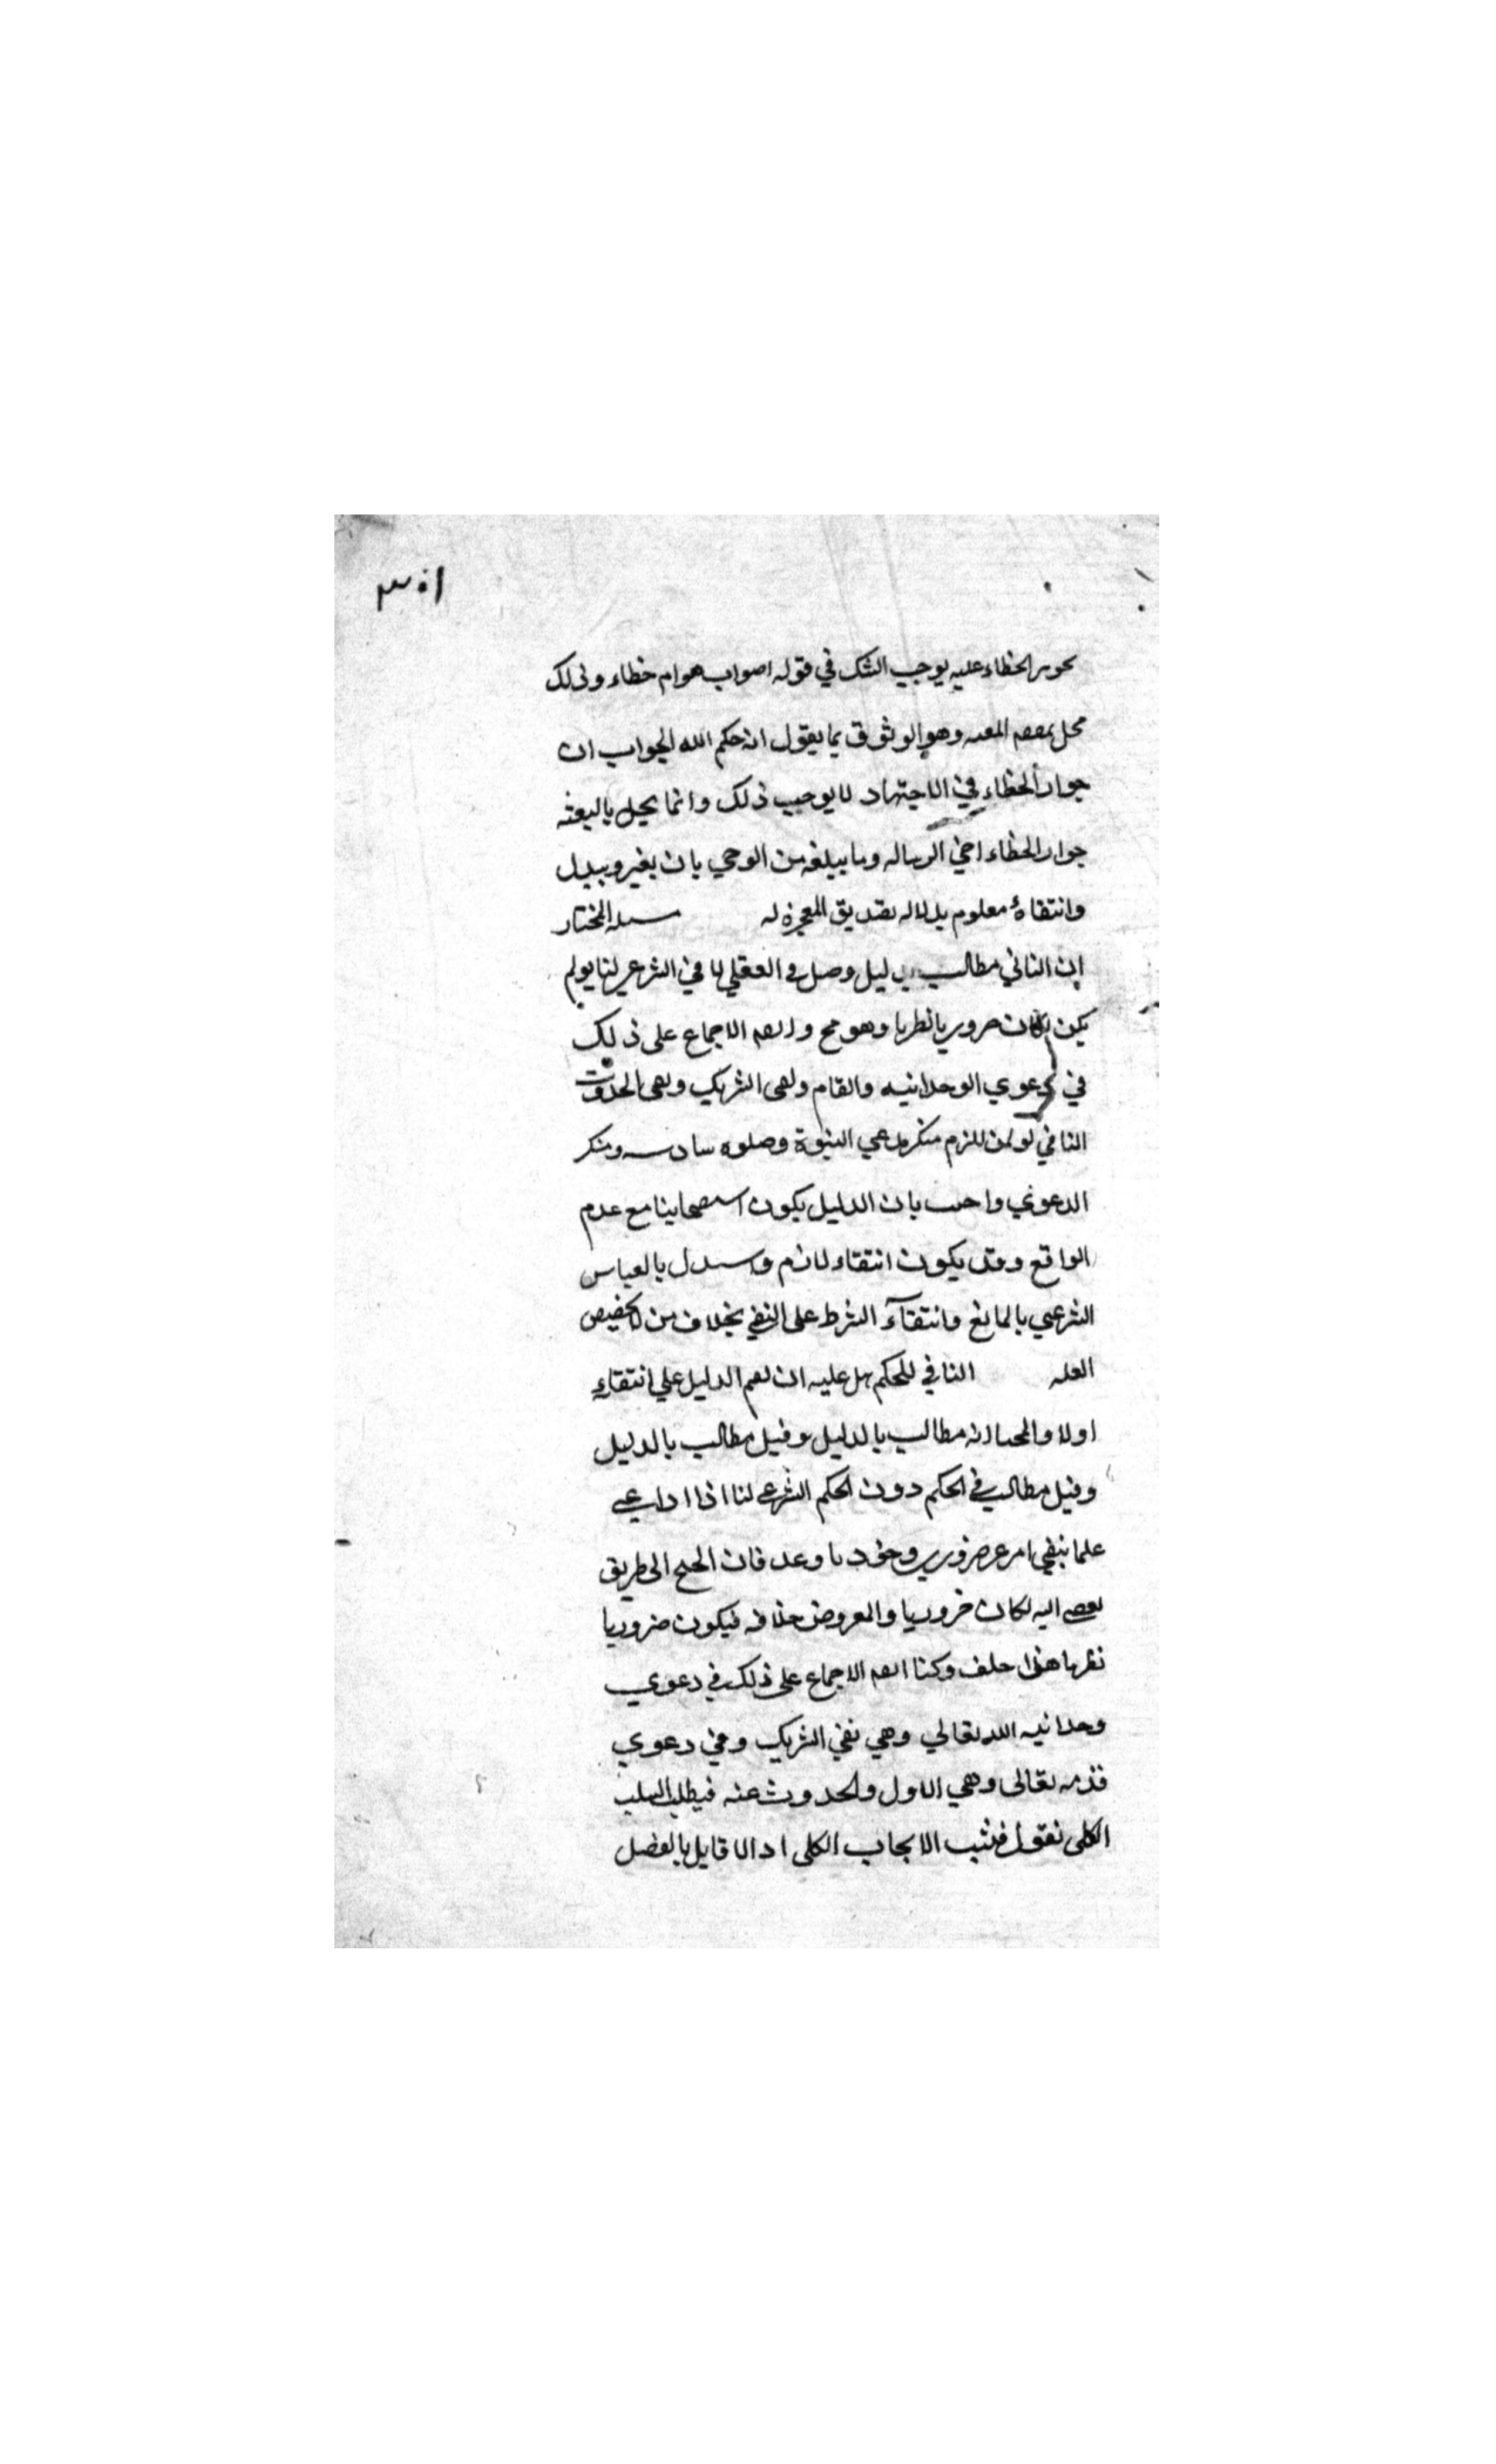 ٣٠١
تجويز الخطاء عليه يوجب الشك في قوله اصواب هو ام خطاء وذلك
محل بمقصد البعثه وهو الوثوق بما يقول انه حكم الله الجواب ان
جواز الخطاء في الاجتهاد لا يوجب ذلك وانما يحل بالبعثه
جواز الخطاء في الرساله وما يبلغه من الوحي بان يغير ويبدل
وانتقاؤه معلوم بدلاله تصديق المعجزة له مسله المختار
ان النافي مطالب بدليل وصل في العقلي لا في الشرعي لنا لو لم
يكن لكان ضروريا نظريا وهو مح وايضا الاجماع على ذلك
في دعوي الوحدانيه والقدم ونفى الشريك ونفى الحدوث
النافي لو لزم للزم منكر مدعي النبوة وصلوه سادسه ومنكر
الدعوي واجيب بان الدليل يكون استصحابيا مع عدم
الواقع وقد يكون انتقاء لازم ويستدل بالقياس
الشرعي بالمانع وانتقآء الشرط على النفي بخلاف من لا يخصص
العله النافي للحكم هل عليه ان يقيم الدليل علي انتقايه
اولا والمختار انه مطالب بالدليل وقيل مطالب بالدليل
وقيل مطالب في الحكم دون الحكم الشرعي لنا اذا ادعي
علما بنفي امر غير ضروري
اليه لكان ضروريا والمفروض خلافه فيكون ضروريا
نظريا هذا خلف وكنا ايضا الاجماع على ذلك في دعوي
وحدانيه الله تعالي وهي نفي الشريك وفي دعوي
قدمه تعالى وهي الاول والحدوث عنه فيطلب السلب
الكلى نقول فيثبت الايجاب الكلى اذ لا قايل بالفصل